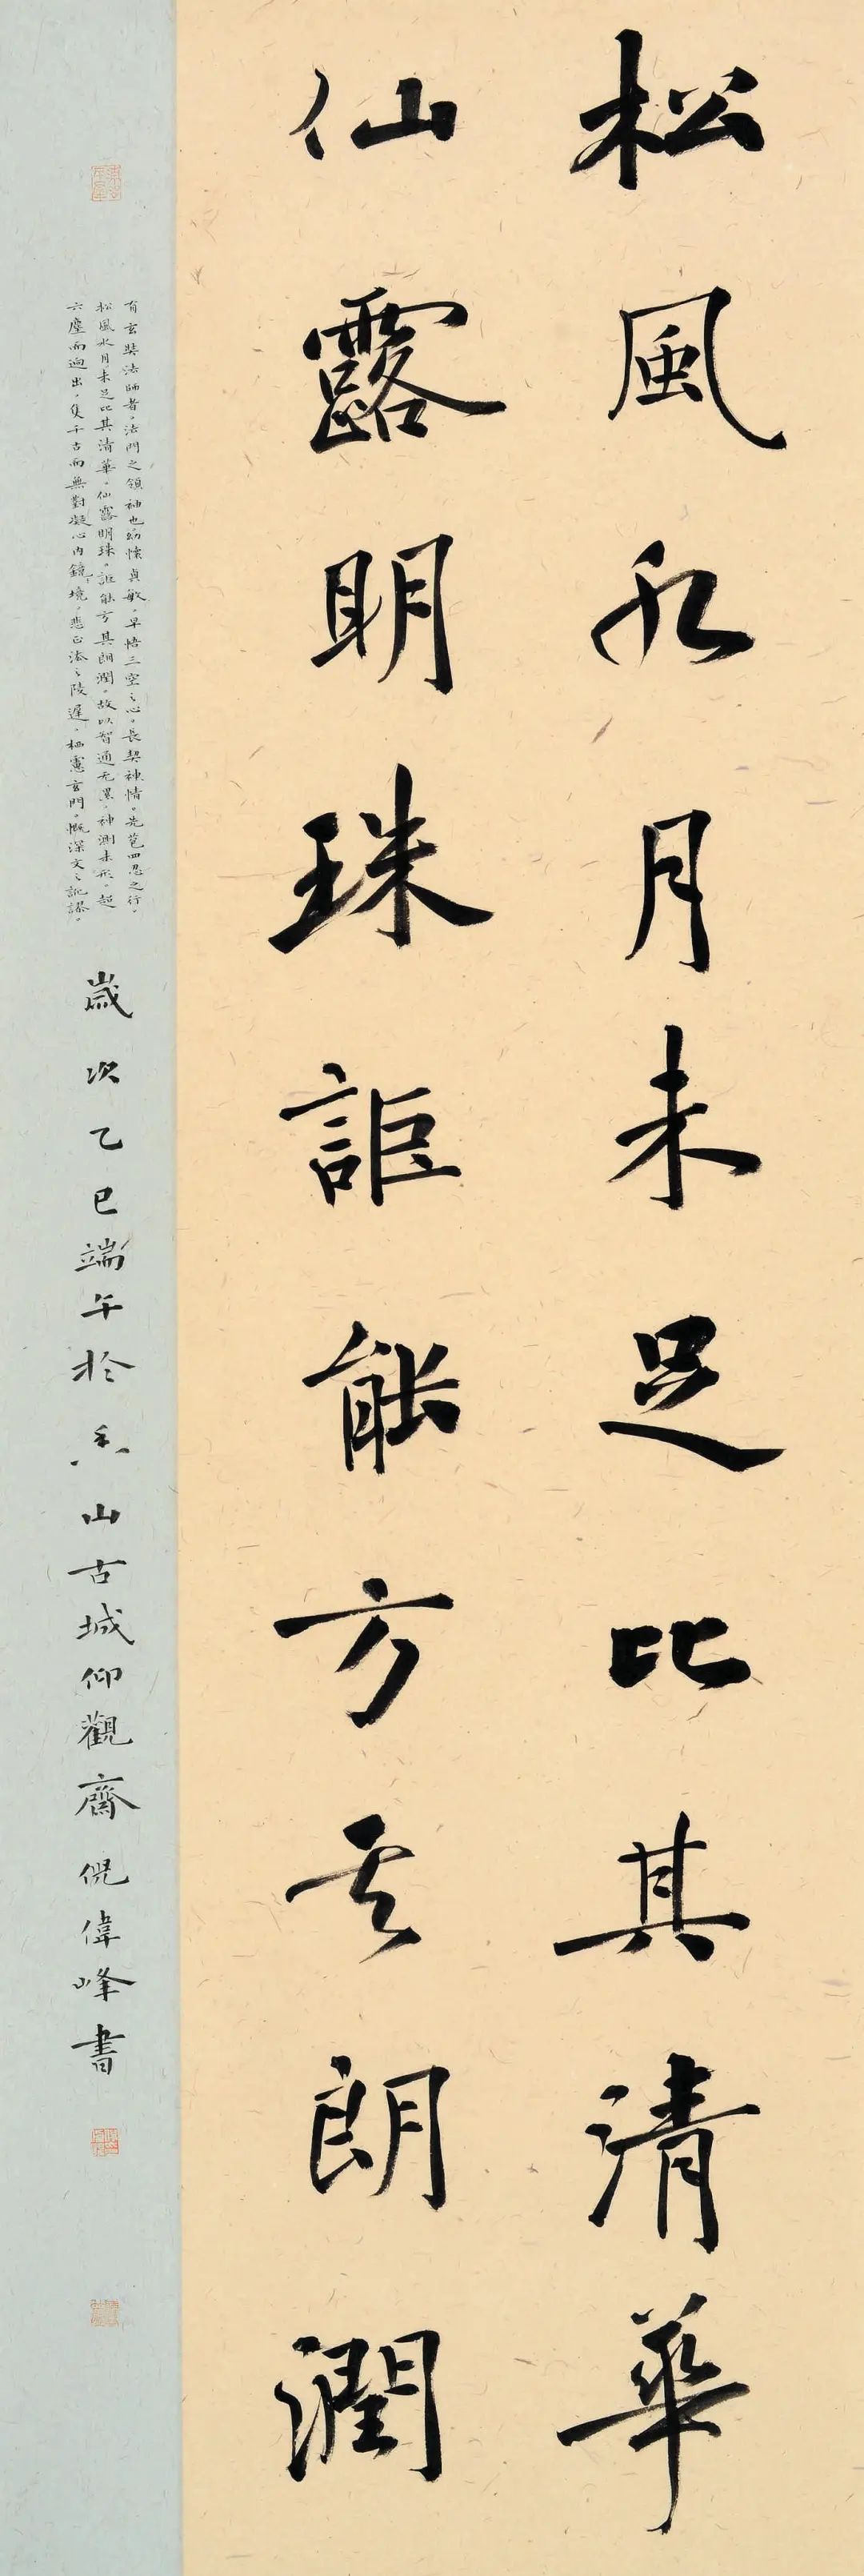 松風水月未足比其清華
仙露明珠詎能方其朗潤
有玄奘法師者。法門之領袖也幼懷貞敏。早悟三空之心。長契神情。先苞四忍之行。
松風水月未足比其清華。仙露明珠。詎能方其朗潤。故以智通无累。神測未形。超
六塵而迥出。隻千古而無對凝心內鏡境。悲正法之陵遲。栖慮玄門。慨深文之訛謬。
歲次乙巳端午於香山古城仰觀齋倪偉峰書